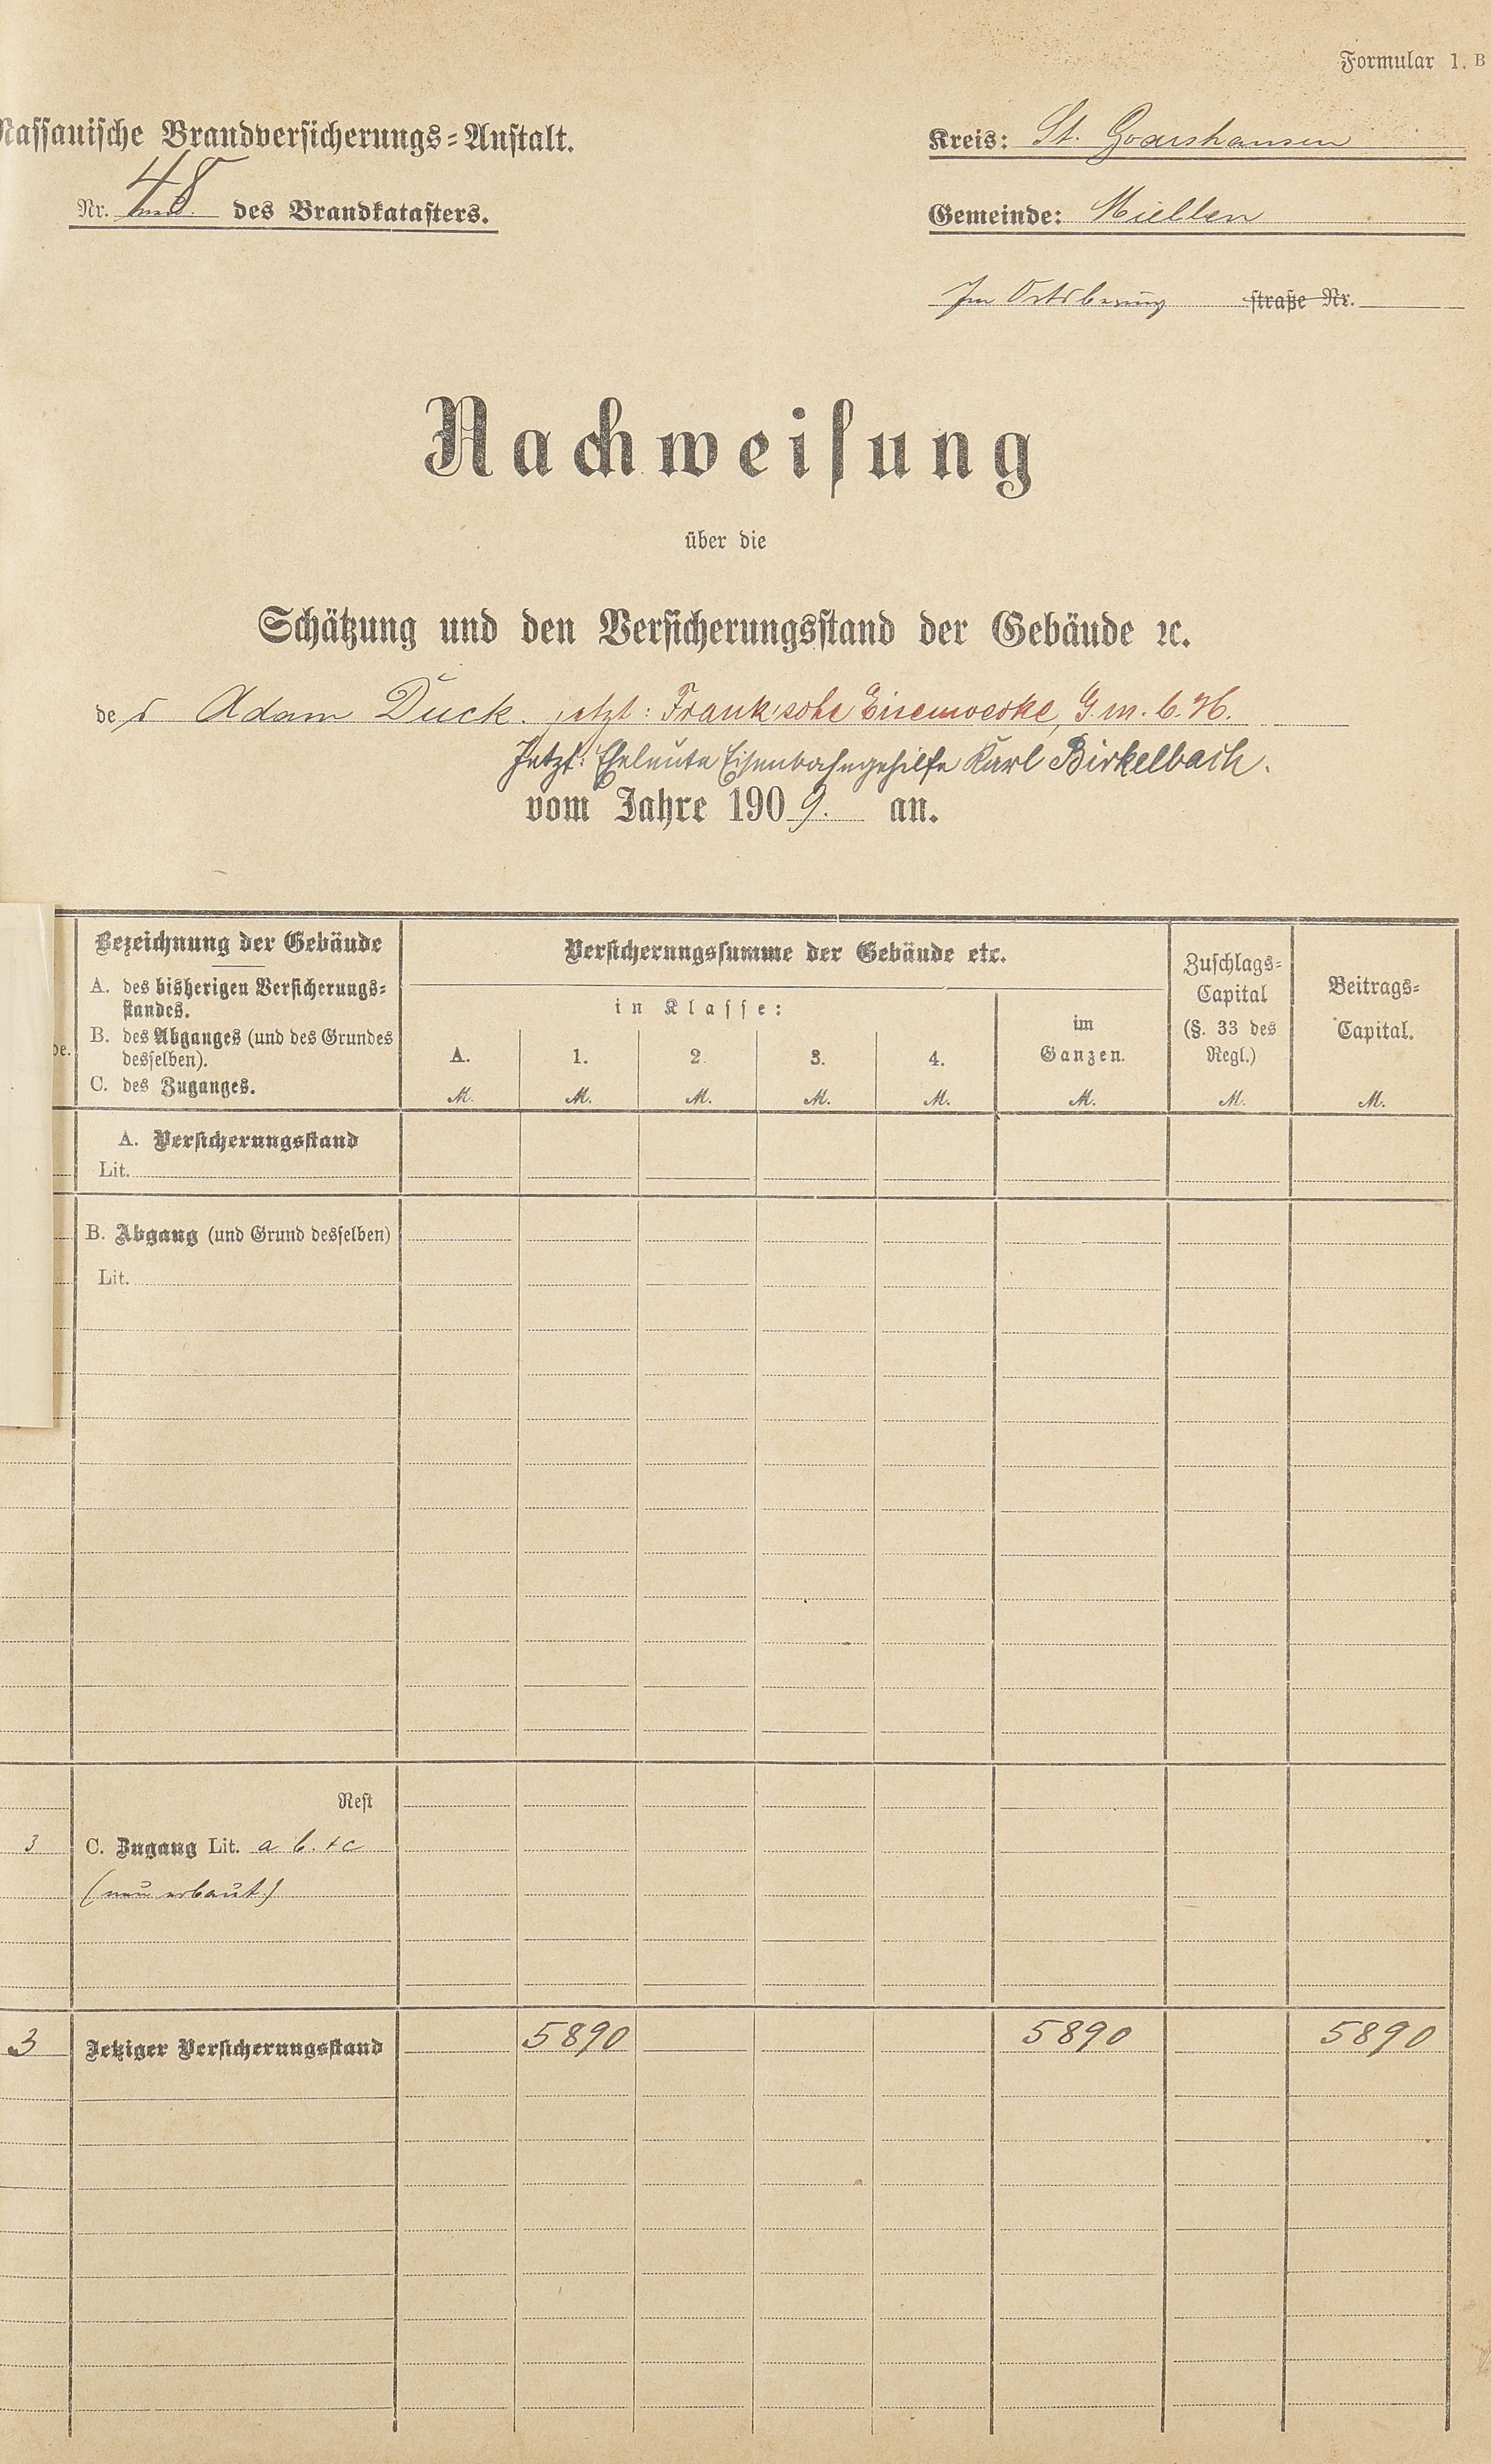 Formular 1. B
Nassauische Brandversicherungs=Anstalt.
Nr. 48 des Brandkatasters.
Kreis: St. Goarshausen
Gemeinde: Miellen
Im Ortsbering straße Nr.
Nachweisung
über die
Schätzung und den Versicherungsstand der Gebäude ꝛc.
des Adam Duck. jetzt: Frank'sche Eisenwerke, G. m. b. H.
Jetzt: Eheleute Eisenbahngehilfe Karl Birkelbach.
vom Jahre 1909. an.
Bezeichnung der Gebäude
A. des bisherigen Versicherungs=
standes.
B. des Abganges (und des Grundes
desselben).
C. des Zuganges.
Versicherungssumme der Gebäude etc.
in Klasse:
A. 1. 2. 3. 4.
M. M. M. M. M.
im
Ganzen.
M.
Zuschlags=
Capital
(§. 33 des
Regl.)
M.
Beitrags=
Capital.
M.
A. Versicherungsstand
Lit.
B. Abgang (und Grund desselben)
Lit.
Rest
3 C. Zugang Lit. a b. + c
(neu erbaut.)
3 Jetziger Versicherungsstand 5890 5890 5890